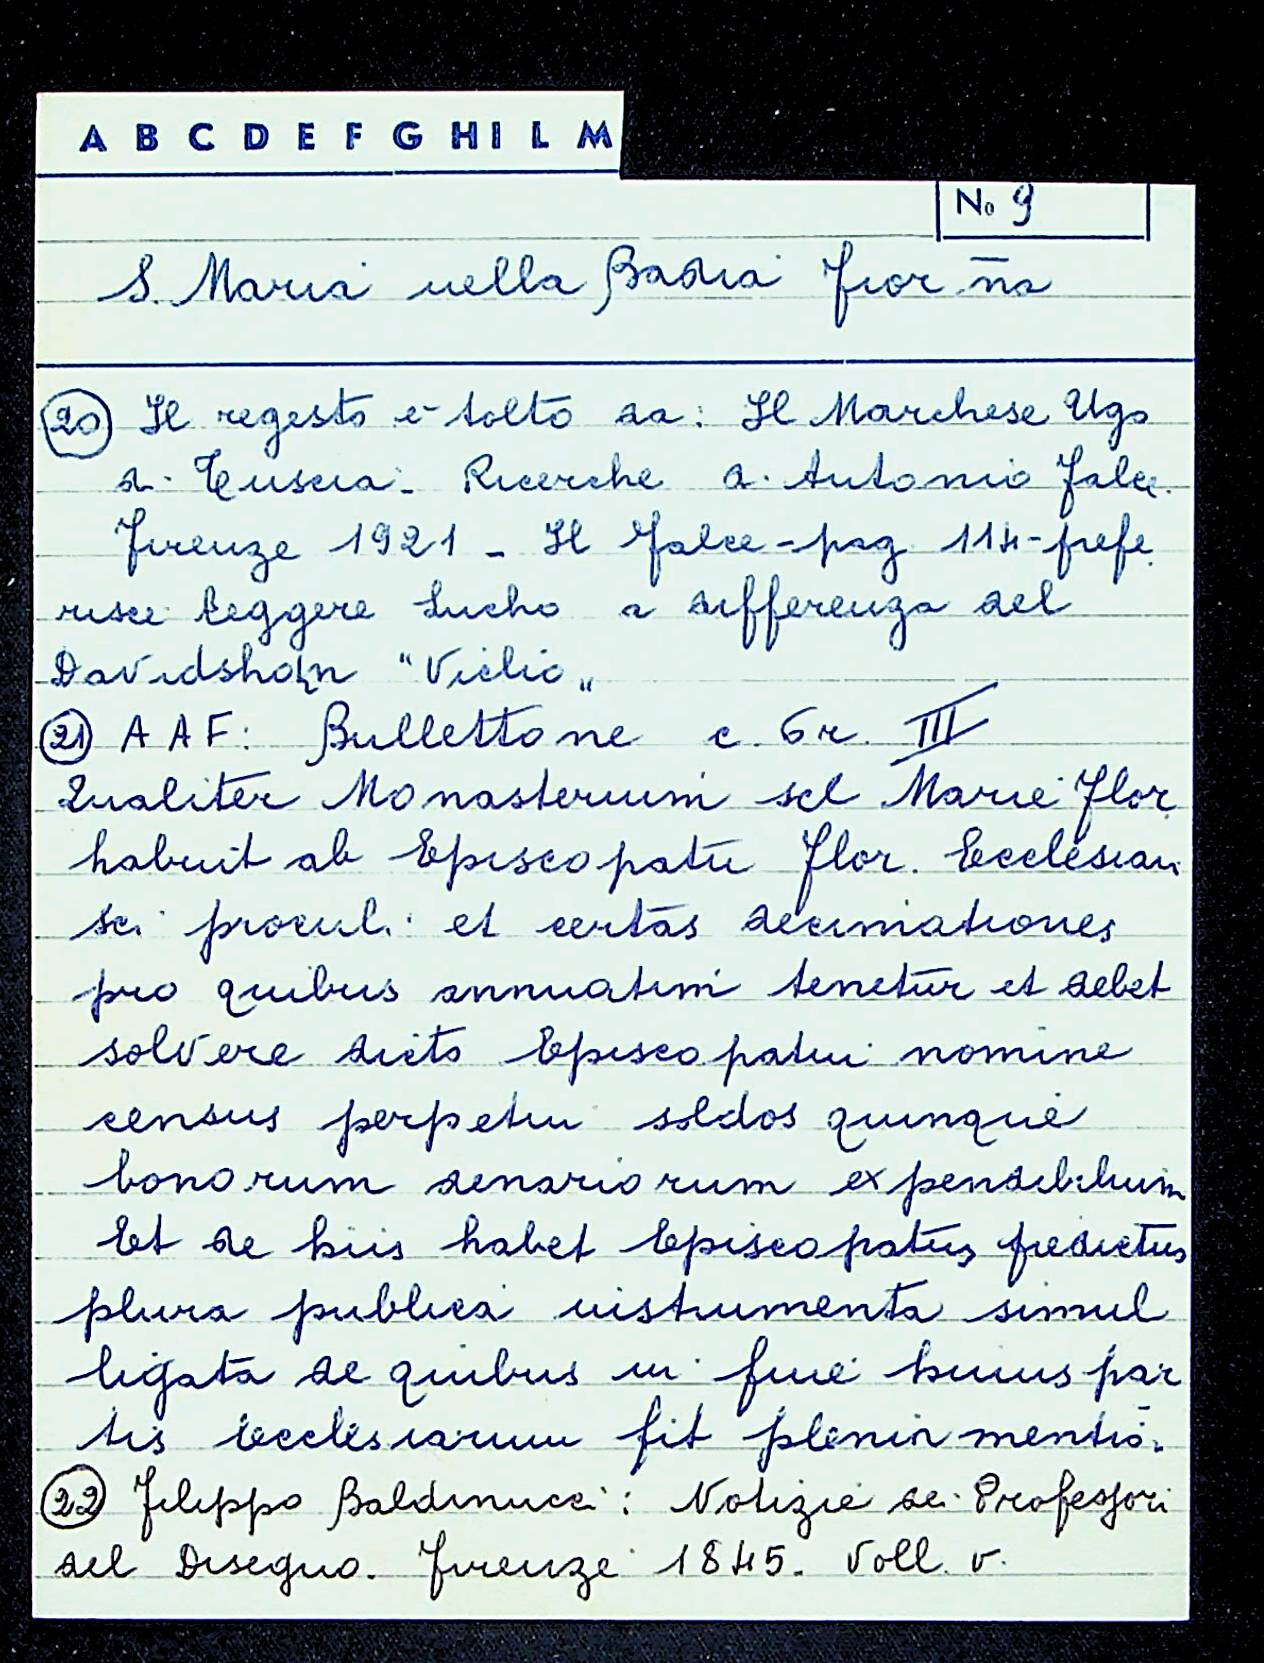 A B C D E F G H I L M
No 9
S. Maria nella Badia Fior.na
20 Il regesto è tolto da: Il Marchese Ugo
di Tuscia. Ricerche di Antonio Falce.
Firenze 1921 - Il Falce - pag 114 - prefe
risce leggere Lucho a differenza del
Davidshohn "Viclio„
21 A A F: Bullettone c. 6 r. III
Qualiter Monasterium scE Marie Flor
habuit ab Episcopatu Flor. Ecclesiam
sci proculi et certas decimationes
pro quibus annuatim tenetur et debet
solvere dicto Episcopatui nomine
census perpetui soldos quinque
bonorum denariorum expendibilium
Et de hiis habet Episcopatus predictus
plura publica instrumenta simul
ligata de quibus in fine huius par
tis Ecclesiarum fit plenior mentio.
22 Filippo Baldinucci: Notizie dei Professori
del Disegno. Firenze 1845. Voll. V.